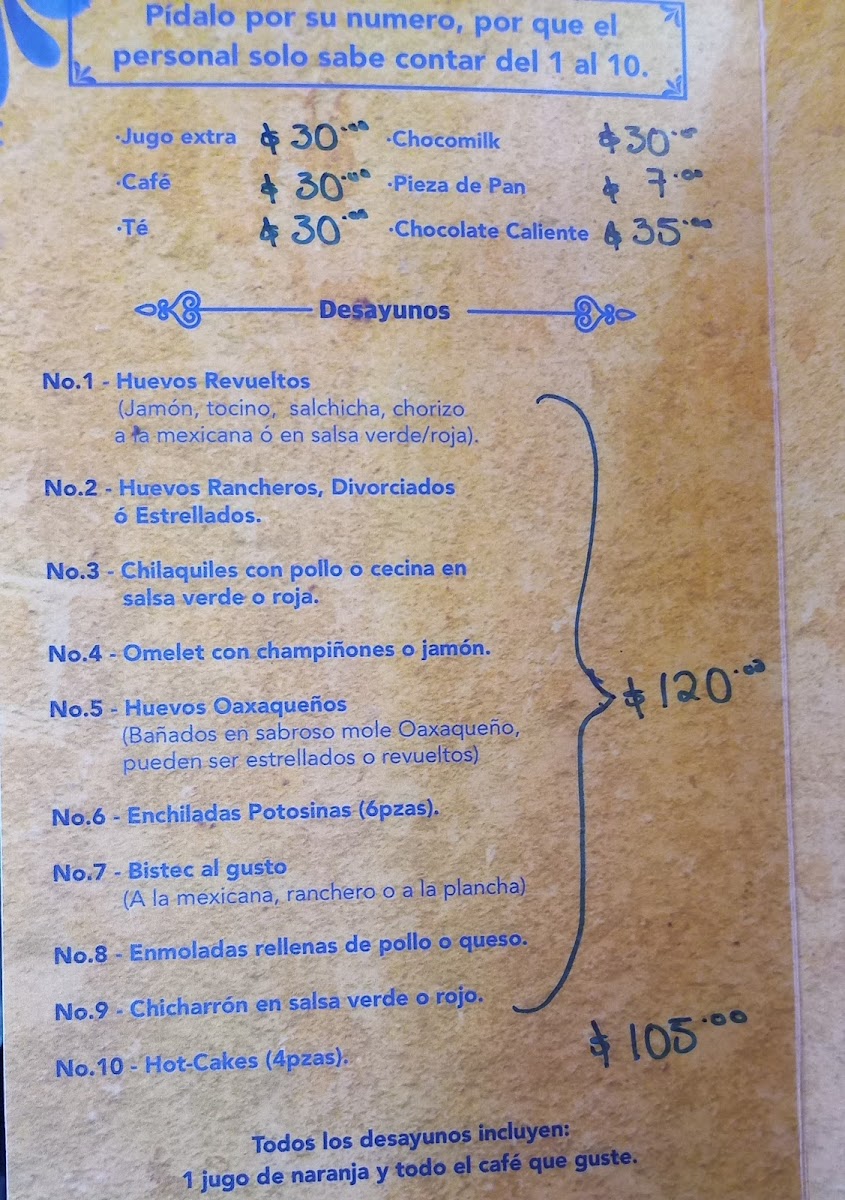 Pídalo por su numero, por que el
personal solo sabe contar del 1 al 10.
·Jugo extra $ 30.00 ·Chocomilk $30.00
·Café $ 30.00 ·Pieza de Pan $ 7.00
·Té $ 30.00 ·Chocolate Caliente $ 35.00
Desayunos
No.1 - Huevos Revueltos
(Jamón, tocino, salchicha, chorizo
a la mexicana ó en salsa verde/roja).
No.2 - Huevos Rancheros, Divorciados
ó Estrellados.
No.3 - Chilaquiles con pollo o cecina en
salsa verde o roja.
No.4 - Omelet con champiñones o jamón.
No.5 - Huevos Oaxaqueños
(Bañados en sabroso mole Oaxaqueño,
pueden ser estrellados o revueltos)
$ 120.00
No.6 - Enchiladas Potosinas (6pzas).
No.7 - Bistec al gusto
(A la mexicana, ranchero o a la plancha)
No.8 - Enmoladas rellenas de pollo o queso.
No.9 - Chicharrón en salsa verde o rojo.
No.10 - Hot-Cakes (4pzas). $ 105.00
Todos los desayunos incluyen:
1 jugo de naranja y todo el café que guste.